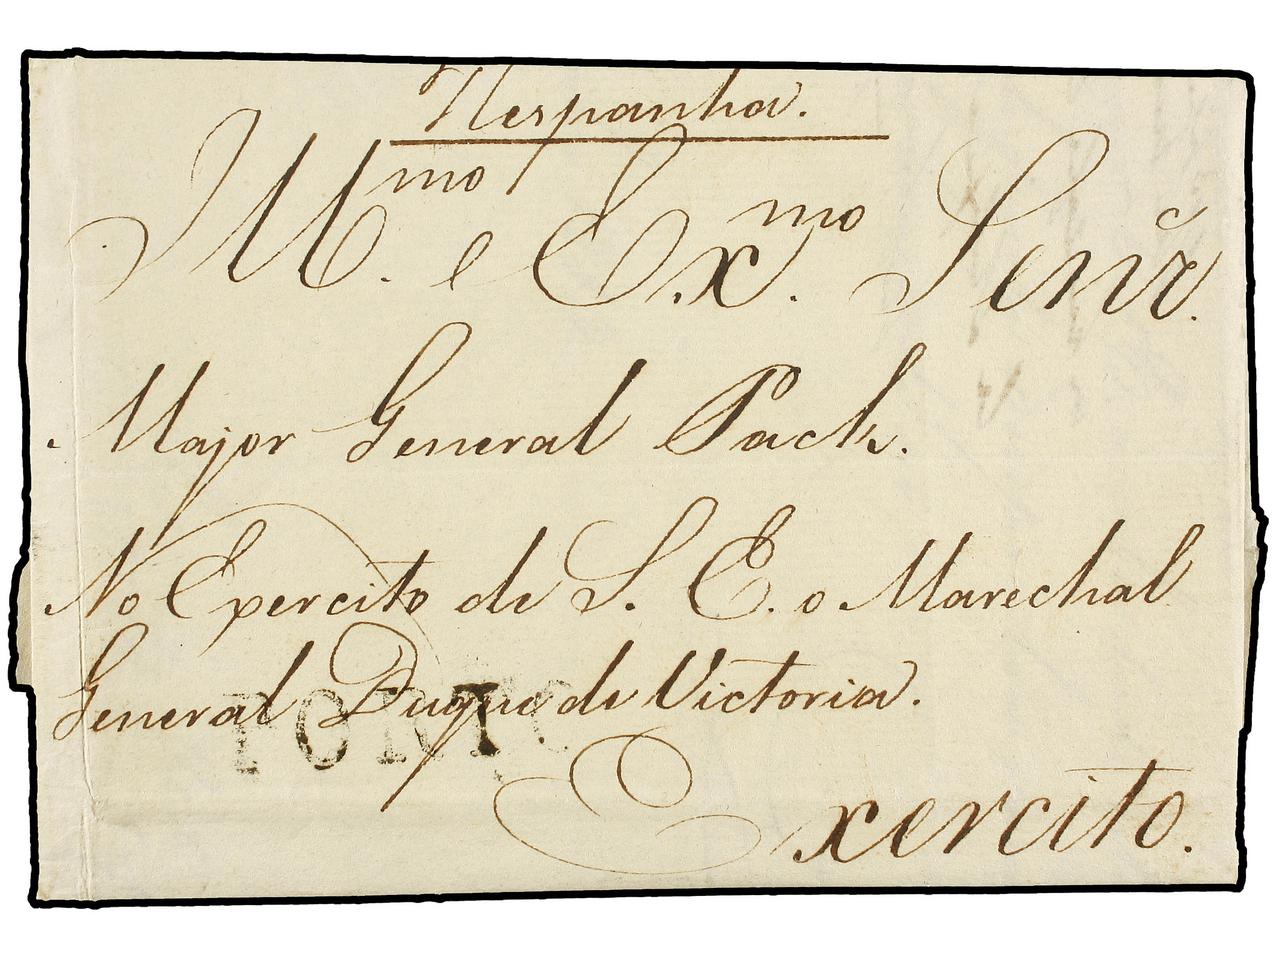 Hespanha.
Illmo. e Exmo. Senr̃.
Major General Pack.
No Exercito de S. E. o Marechal
General Duque de Victoria.
PORTO
Exercito.